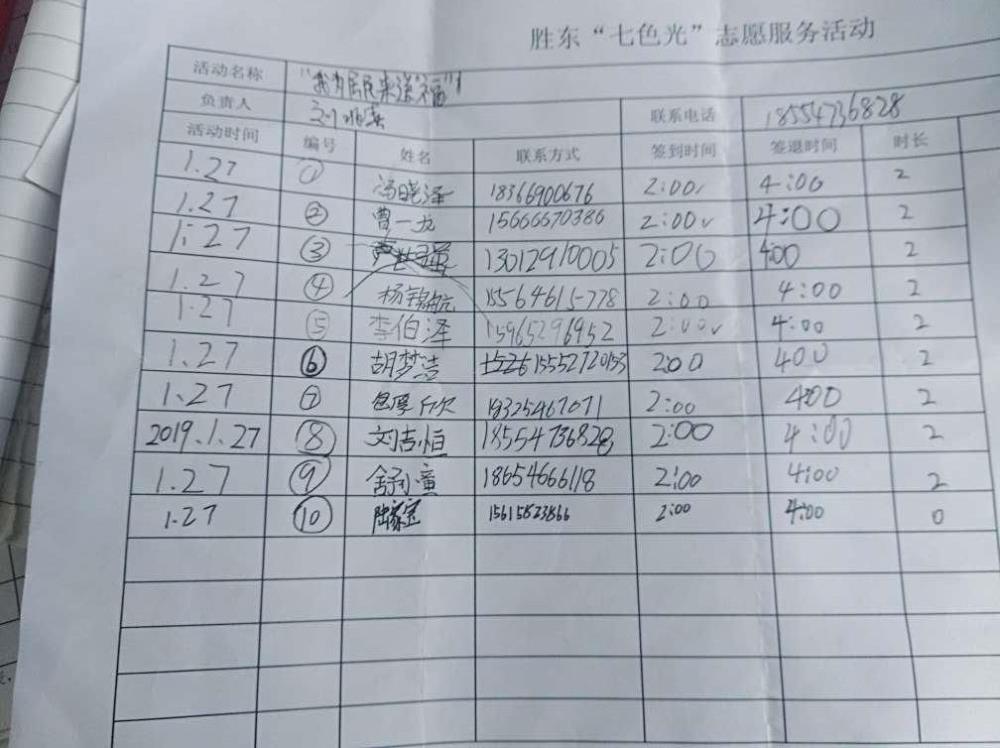 胜东“七色光”志愿服务活动
活动名称 “我为居民来送福”
负责人 联系电话 18554736828
活动时间 编号 姓名 联系方式 签到时间 签退时间 时长
1.27 ① 冯晓泽 18366900676 2:00 4:00 2
1.27 ② 曹一龙 15666670386 2:00 4:00 2
1:27 ③ 13012910005 2:00 4:00 2
1.27 ④ 杨锦航 15564615778 2:00 4:00 2
1.27 ⑤ 李伯泽 15965296952 2:00 4:00 2
1.27 ⑥ 胡梦洁 15552720153 2:00 4:00 2
1.27 ⑦ 18325467071 2:00 4:00 2
2019.1.27 ⑧ 刘吉恒 18554736828 2:00 4:00 2
1.27 ⑨ 舒童 18654666118 2:00 4:00 2
1.27 ⑩ 陆家宝 15615823866 2:00 4:00 0